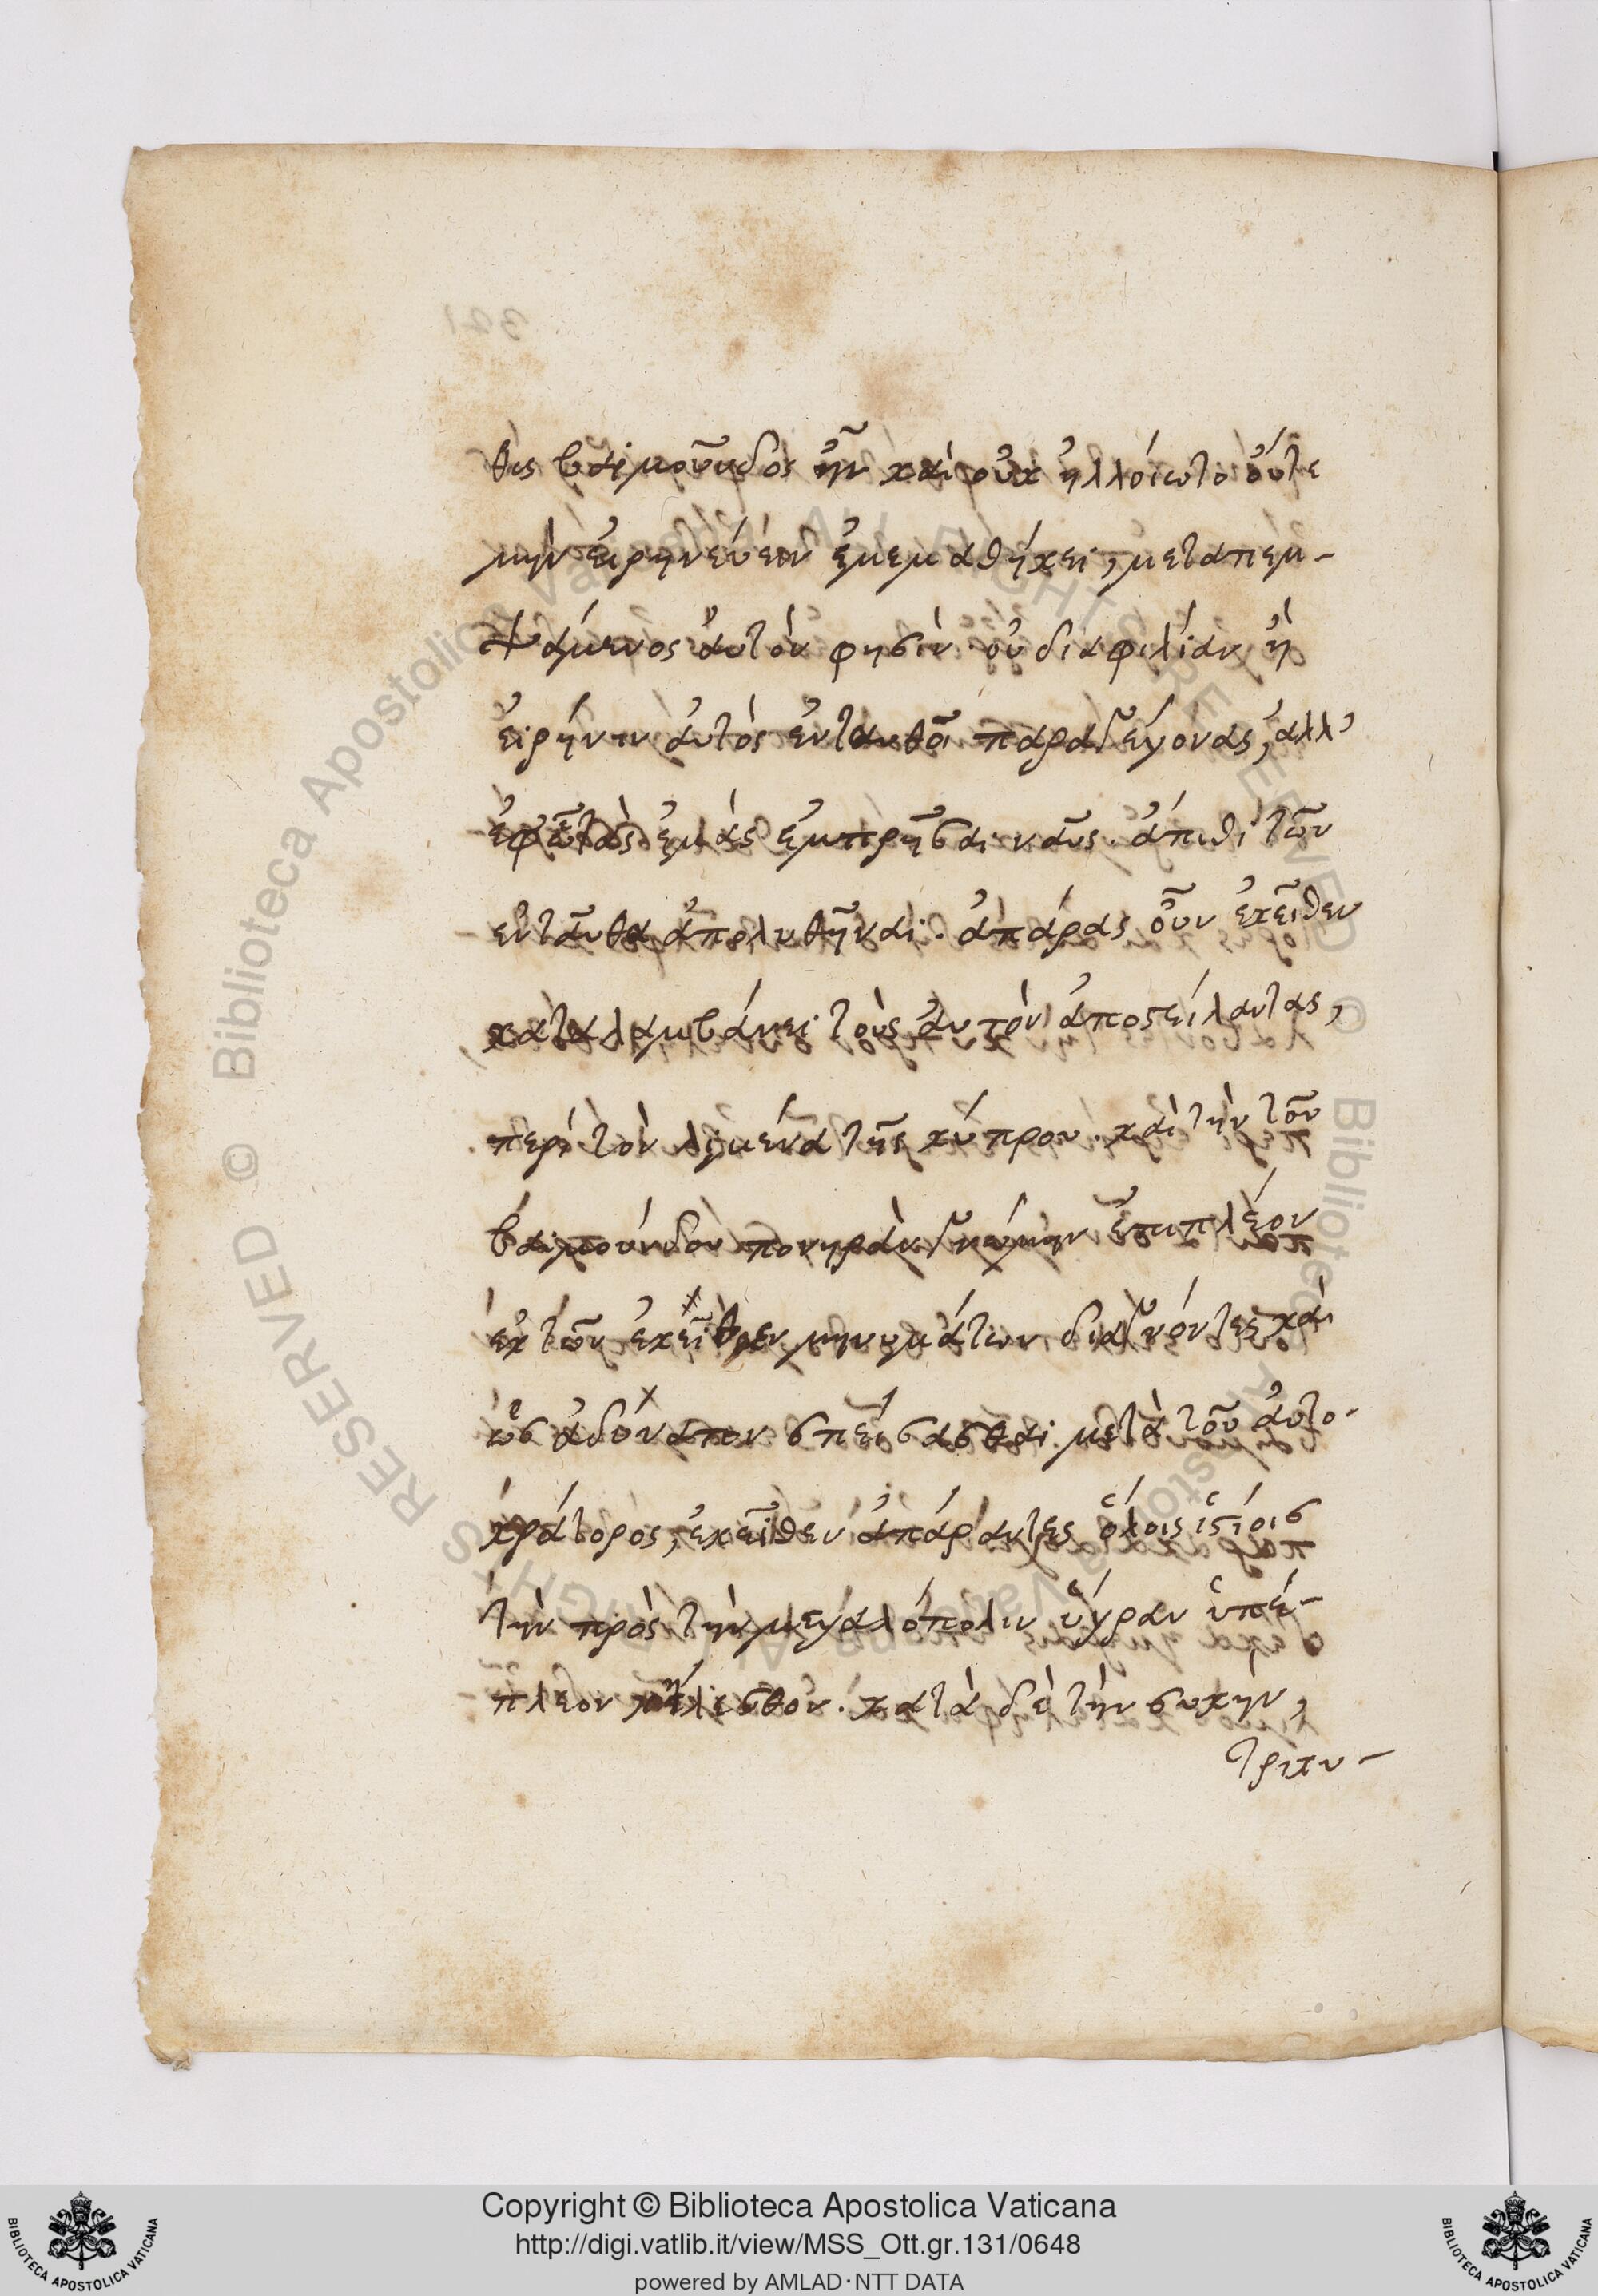 θις βαϊμοῦνδος ἦν καὶ οὐκ ἠλλοίωτο οὔτε
μὴν εἰρηνεύειν ἐμεμαθήκει, μεταπεμ-
ψάμενος αὐτόν φησιν· οὐ διὰ φιλίαν ἢ
εἰρήνην αὐτὸς ἐνταυθοῖ παραγέγονας, ἀλλ᾽
ἐφ᾽ ᾧ τὰς ἐμὰς ἐμπρῆσαι ναῦς. ἄπιθι τῶν
ἐνταῦθα ἀπολυθῆναι. ἀπάρας οὖν ἐκεῖθεν
καταλαμβάνει τοὺς αὐτὸν ἀποστείλαντας,
περὶ τὸν λιμένα τῆς κύπρου. καὶ τὴν τοῦ
βαϊμούνδου πονηρὰν γνώμην ἐπιπλέον
ἐκ τῶν ἐκεῖθεν μηνυμάτων διαγνόντες καὶ
ὡς ἀδύνατον σπείσασθαι μετὰ τοῦ αὐτο-
κράτορος, ἐκεῖθεν ἀπάραντες ὅλοις ἱστίοις
τὴν πρὸς τὴν μεγαλόπολιν ὑγρὰν ὑπέ-
πλεον κέλευθον. κατὰ δὲ τὴν συκην,
τρικυ-
321
RESERVED © Biblioteca Apostolica Vaticana ALL RIGHTS RESERVED © Biblioteca Apostolica Vaticana ALL RIGHTS
Copyright © Biblioteca Apostolica Vaticana
http://digi.vatlib.it/view/MSS_Ott.gr.131/0648
powered by AMLAD·NTT DATA
BIBLIOTECA APOSTOLICA VATICANA
BIBLIOTECA APOSTOLICA VATICANA